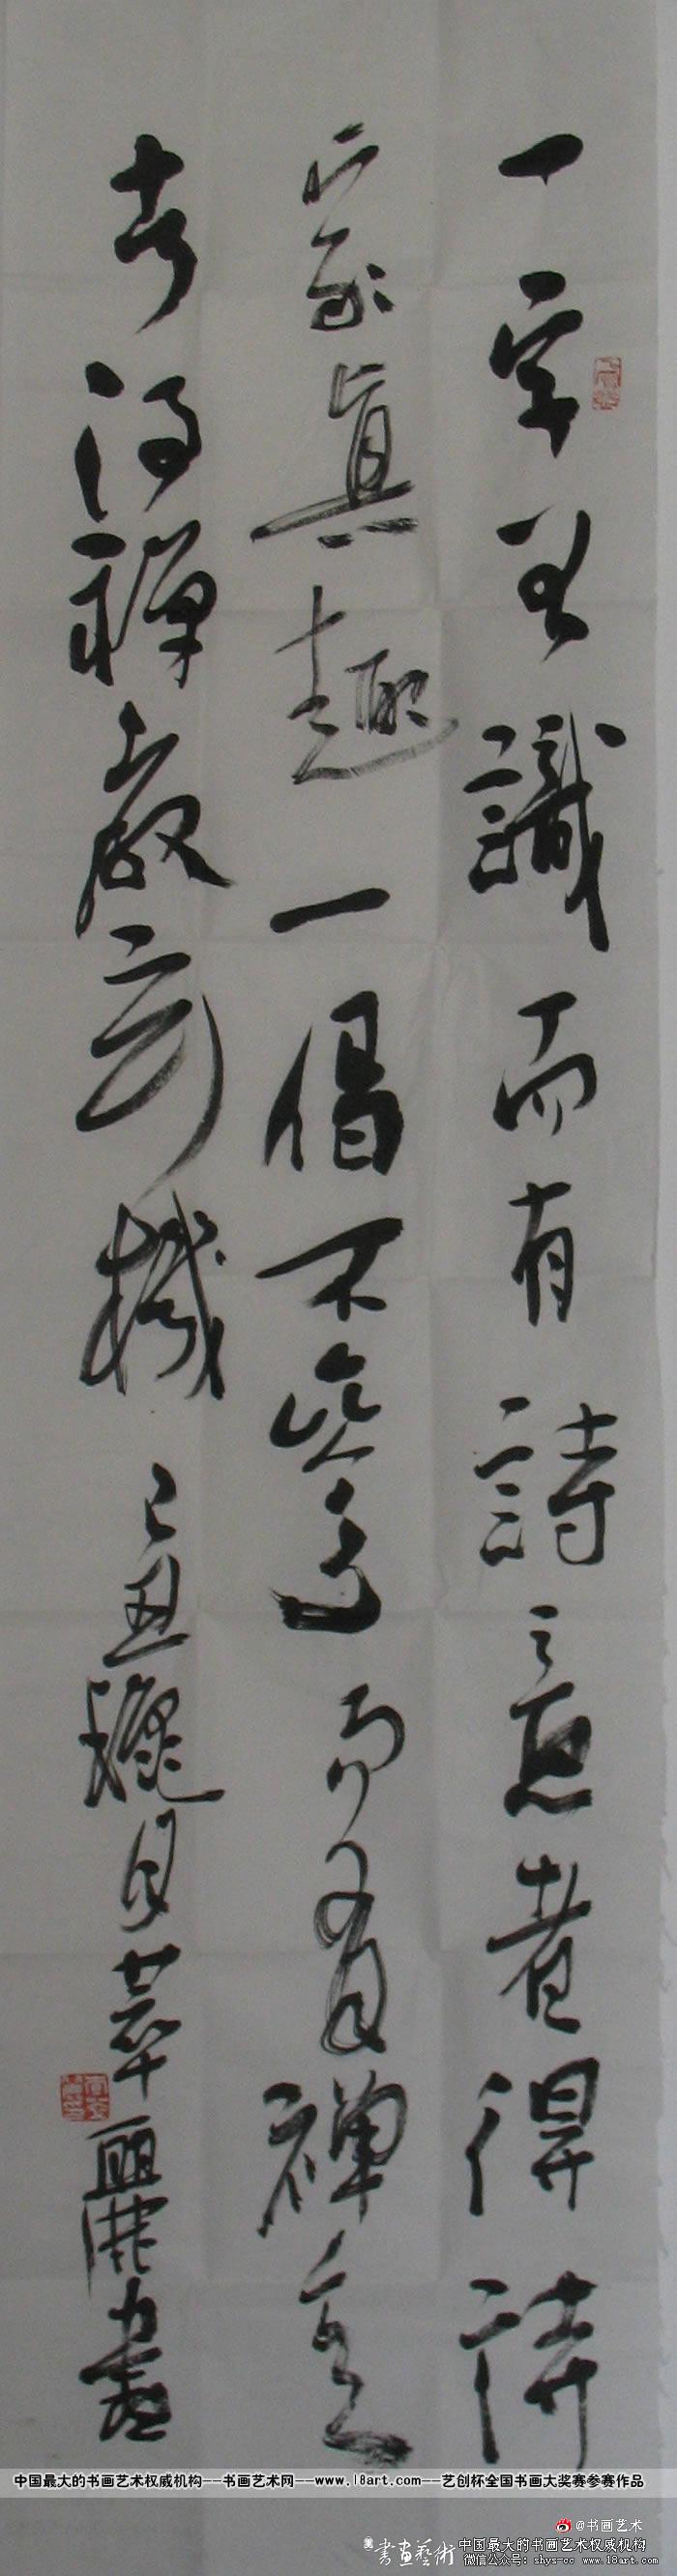 一字不識而有詩意者得詩
家真趣一偈不參而有禪意
者得禪教玄機 己丑穐月
中国最大的书画艺术权威机构--书画艺术网--www.18art.com--艺创杯全国书画大奖赛参赛作品
@书画艺术
書畫藝術 中国最大的书画艺术权威机构
微信公众号:shys-cc www.18art.com